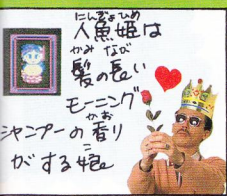 にんぎょひめ
人魚姫は
かみ なが
髪の長い
モーニング
かお
シャンプーの香り
こ
がする娘